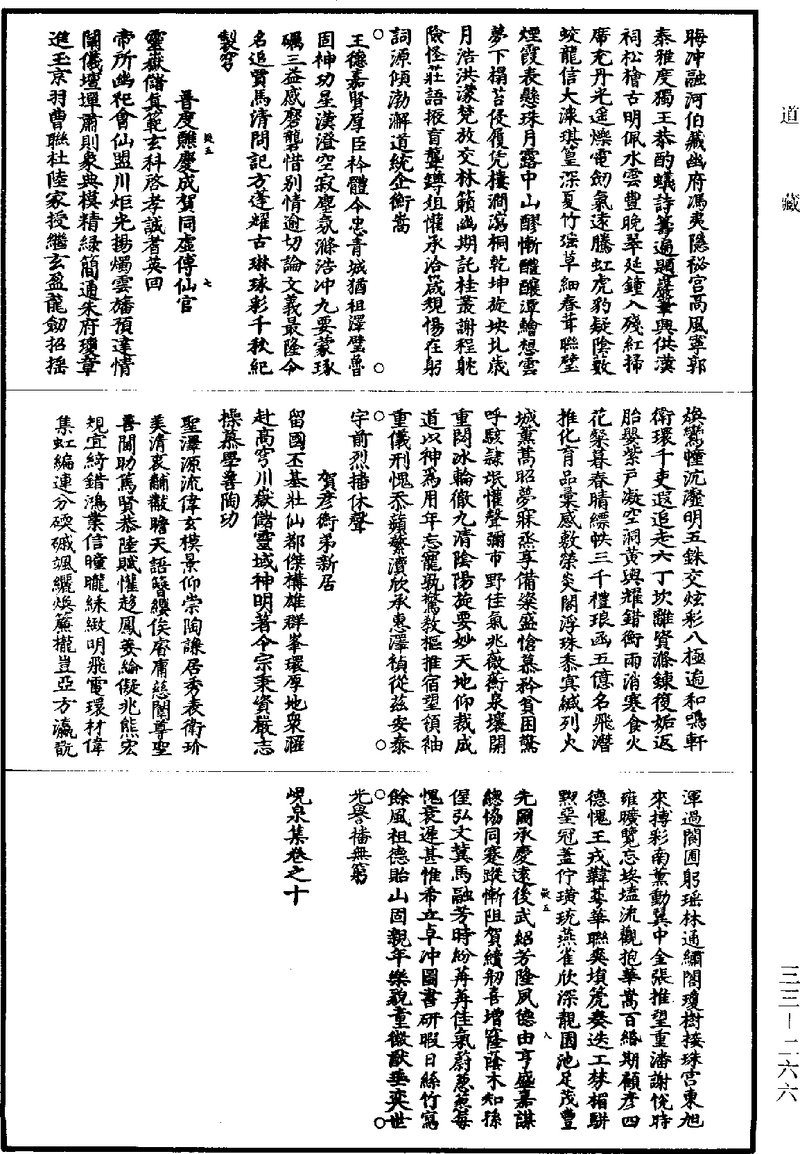 道藏
晦冲融河伯藏幽府馮夷隱秘宮高風寧郭
泰雅度獨王恭酌蟻詩籌過題麟筆興供漢
祠松檜古明佩水雲豐晚翠延鍾入殘紅掃
席充丹光逵爍電劒氣遠騰虹虎豹疑陰數
蛟龍信大濛琪篁深夏竹瑶草細春茸聯璧
煙霞表懸珠月露中山醪慚醴釀潭繪想雲
夢下榻苔侵履凭樓澗瀉桐乾坤旋坱圠歲
月浩洪濛凳放交林籟幽期託桂叢謝程躭
險怪莊語掖盲聾鐏俎懽承洽箴規惕在躬
詞源傾渤澥道統企衡嵩
王德嘉賢厚臣衿體令忠青城猶祖澤璧魯
固神功星漢澄空寂塵氛滌浩冲九要蒙琢
礪三益感磨礱惜别情逾切論文義最隆令
名追賈馬清問記方蓬耀古琳球彩千秋紀
製穹
普度醮慶成賀同虚傅仙官
靈嶽儲真範玄科啓孝誠耆英回
帝所幽祀會仙盟川炬光揚燭雲旛預達情
闡儀壇墠肅則象典模精綠簡通朱府瓊章
進玉京羽曹聯杜陸家授繼玄盈龍劒招摇
煥鸞幢沆瀣明五銖交炫彩八極遍和鳴軒
衛環千吏遐追走六丁坎離資滌鍊復姤返
胎嬰紫戸凝空洞黄輿耀錯衡雨消寒食火
花槩暮春晴縹帙三千禮琅函五億名飛潛
推化育品彙感敷榮炎閣浮珠黍寘緘列火
城薰蒿昭夢寐烝享備粢盛愴慕矜貧困驚
呼駭隷氓懽聲彌市野佳氣兆薇蘅泉壤開
重閟冰輪徹九清陰陽旋要妙天地仰裁成
道以神爲用年忘寵孰驚敎樞推宿望領袖
重儀刑愧忝蘋蘩瀆欣承惠澤禎從兹安泰
宇前烈播休聲
賀彦衡弟新居
留國丕基壯仙都傑構雄群峯環厚地衆㴠
赴高穹川嶽儲靈域神明著令宗秉資嚴志
操慕學善陶功
聖澤源流偉玄模景仰崇陶謙居秀表衛玠
美清衷黼黻瞻天語簪纓俟睿庸慈闈尊聖
善閫助篤賢恭陸賦懽趍鳳姜綸儗兆熊宏
規宜綺錯鴻業信曈曨絲緻明飛電環材偉
集虹編連分磙磩颯纚煥簾櫳豈亞方瀛翫
渾過閬圃躬瑶林通繡閣瓊樹接珠宮東旭
來摶彩南薰動巽中金張推望重潘謝恱時
雍曠覽忘埃壒流觀抱華嵩百緡期顧彦四
德愧王戎韡蕚華聯奭塤箎奏迭工棽楣駢
㸃堊冠盖佇璜琉燕雀欣深靚園池足茂豐
先圖承慶遠後武紹芳隆夙德由亨盛嘉謀
總協同蹇蹤慚阻賀續韌喜增窿蔭木知孫
偓弘文冀馬融芳時紛苒苒佳氣蔚葱葱每
愧衰遲甚惟希立卓冲圖書研暇日絲竹寫
餘風祖德貽山固親年樂貌童徽猷垂奕世
光譽播無窮
峴泉集卷之十
三三—二六六